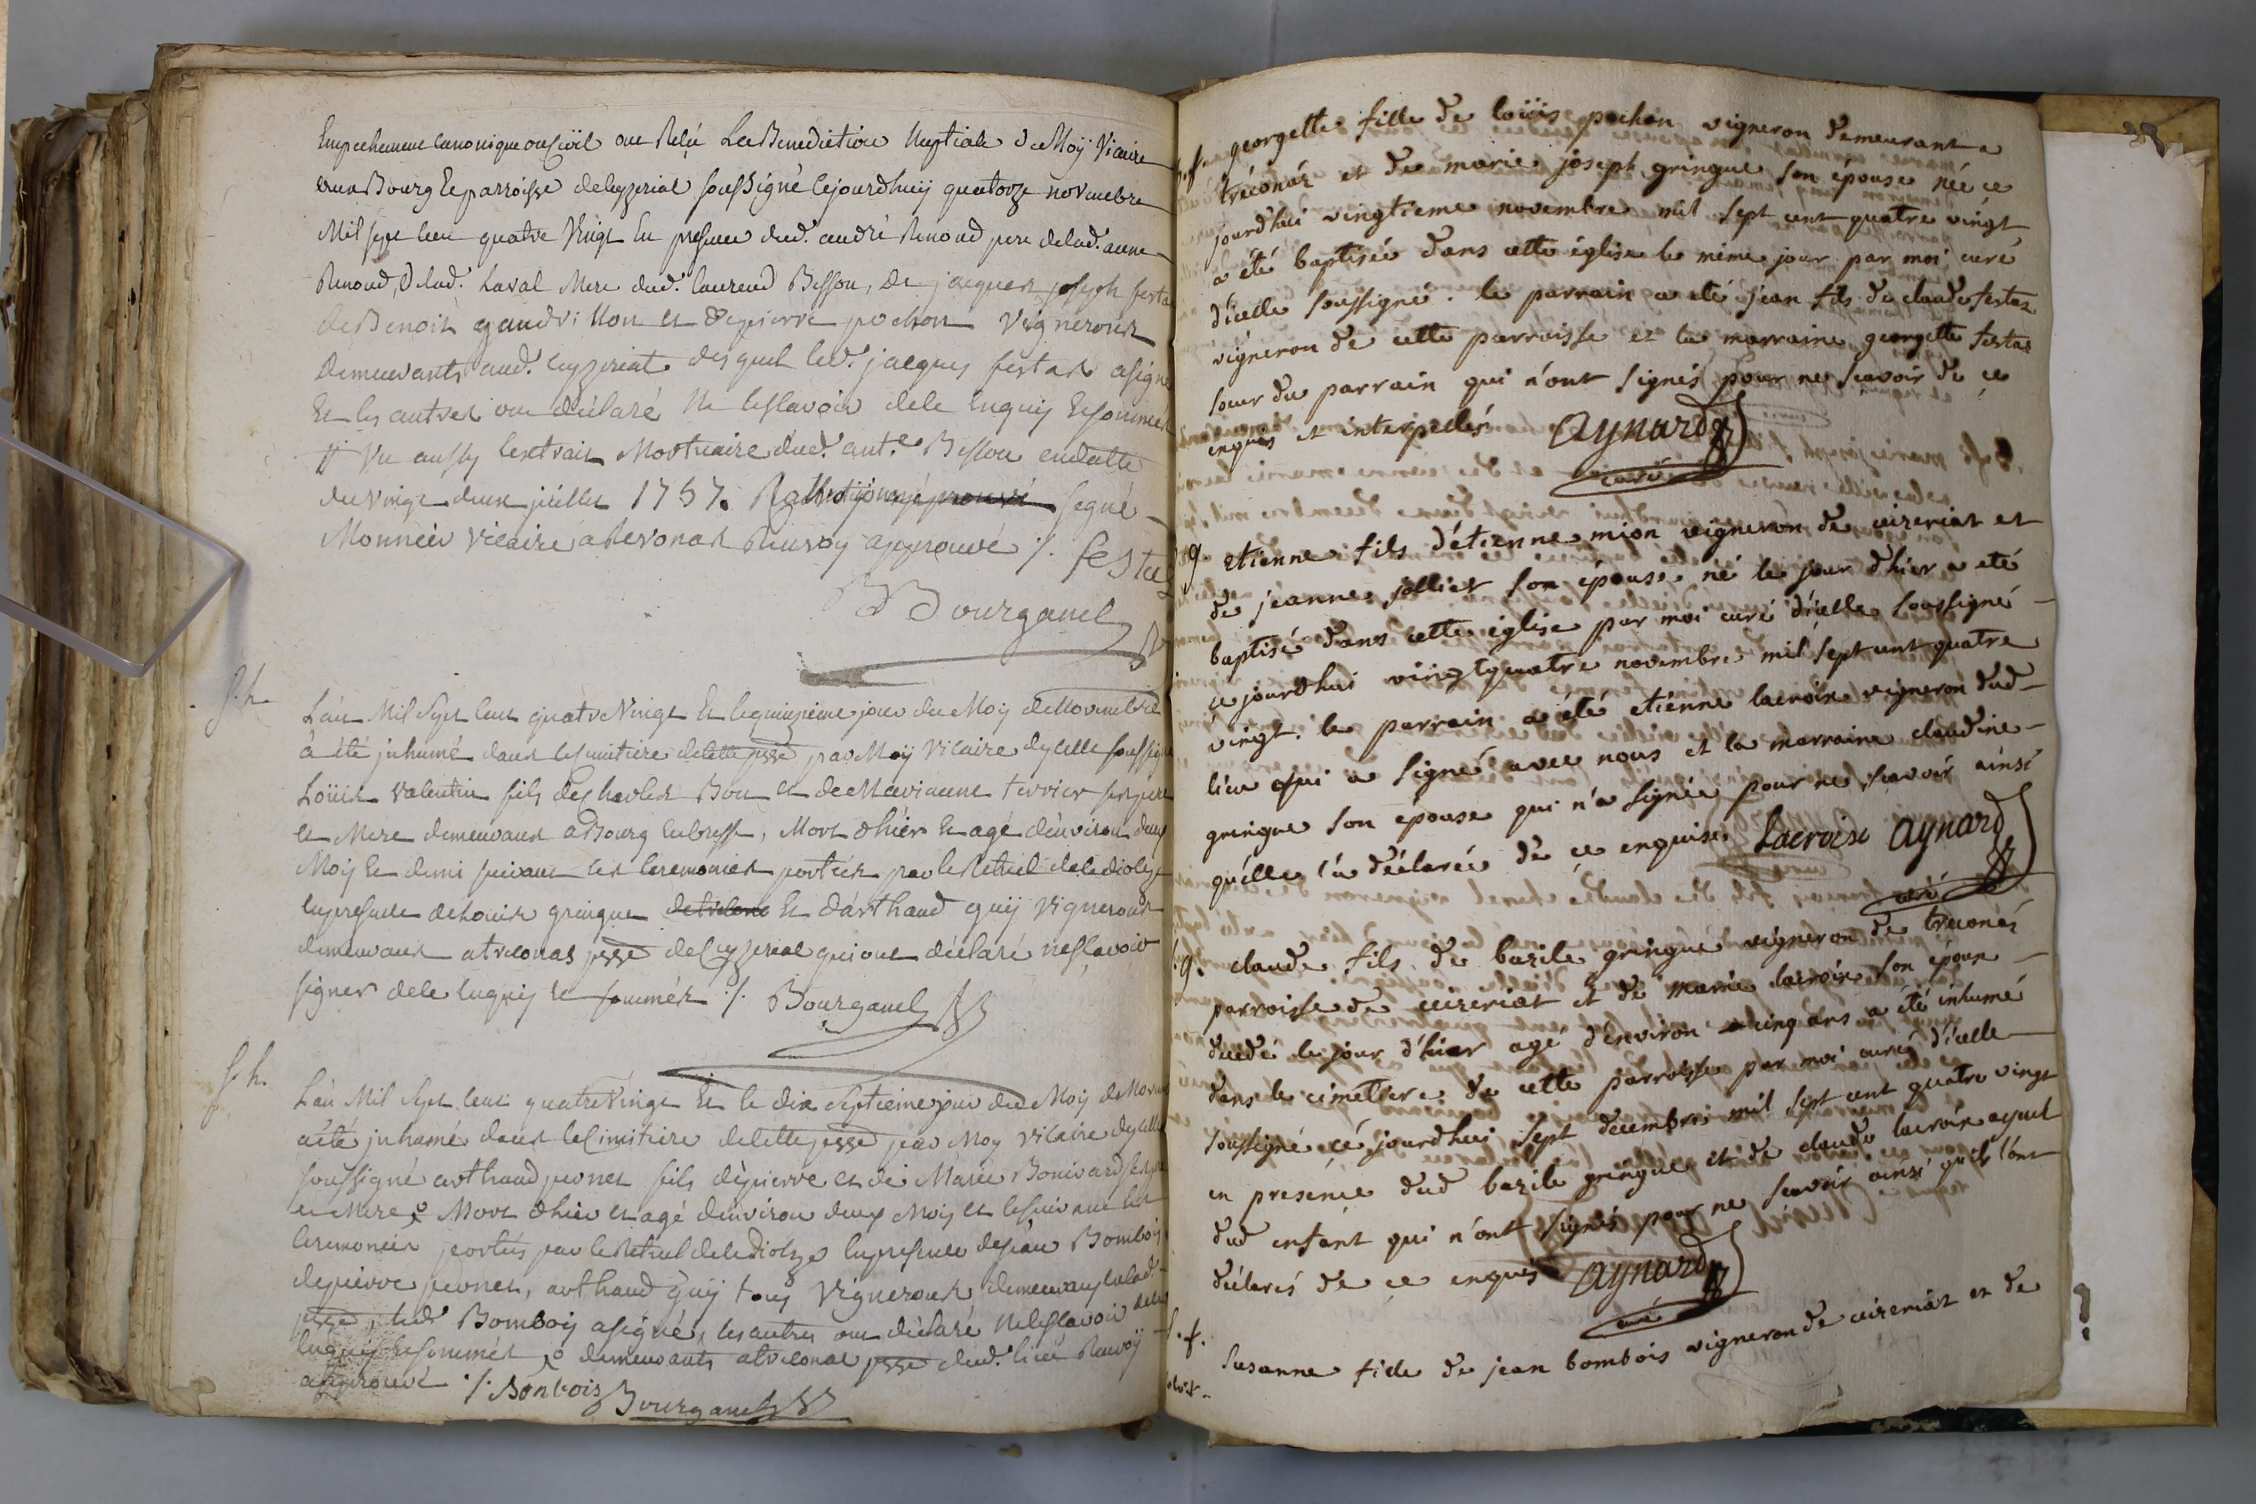 Empechement canonique ou Civil ont Reçu La Benediction Nuptiale De Moÿ Vicaire
Bourg Et parroisse de Ceyzeriat soussigné Cejourdhuÿ quatorze novembre
Mil sept Cent quatre Vingt En presence dud. andré Renoud pere de lad. anne
Renoud, De lad. Laval Mere dud. Laurend Bisson, De jacques joseph festas
de Benoit gandvillon et De pierre pochon Vignerons
Demeurants aud. Ceyzeriat desquel led. jacques festas a signé
Et les autres ont déclaré Ne le sçavoir de le Enquis Et sommés
# Vu aussy L'extrait Mortuaire dud. ant.e Bisson en datte
du vingt deux juillet 1757. signé
Monnier Vicaire a Revonas Renvoy approuvé ./. festas
Bourganel
S. h.
L'an Mil Sept Cent quatre Vingt Et le quinzieme jour du Moy de Novembre
à été juhumé dans le Cimitiere de cette psse par Moÿ Vicaire dycelle soussigné
Loüis Valentin fils de Charles Bon et de Marianne Terrier ses pere
et Mere demeurant a Bourg en bresse, Mort d'hier Et agé d'environ deux
Moy et demi suivant les Ceremonies portées par le Rituel de le dioceze
En presence de Louis gringue Et d'arthaud guÿ Vignerons
demeurant a treconas psse de Ceyzeriat qui ont déclaré ne sçavoir
signer de le Enquis et sommés ./. Bourganel
S. h.
L'an Mil Sept Cent quatre Vingt Et le dix septieme jour du Moy de Novembre
a été juhumé dans le Cimitiere de cette psse par Moy Vicaire dycelle
soussigné arthaud pernet fils de pierre et de Marie Bonivard ses pere
et Mere Mort d'hier et agé d'environ deux Moy et le suivant les
Ceremonies portées par le Rituel de le dioceze En presence de jean Bomboy
de pierre pernet, arthaud guÿ tous Vignerons demeurant en lad.
psse, led. Bomboy a signé, les autres ont déclaré Ne le sçavoir de le
Enquis Et sommés demeurants a treconas psse dud. lieu Renvoÿ
approuvé ./. Bonbois Bourganel
S. f. georgette fille de loüis pochon vigneron demeurant a
treconas et de marie joseph gringue son épouse née ce
jourd'hui vingtieme novembre mil sept cent quatre vingt
a été baptisée dans cette église le même jour par moi curé
d'icelle soussigné. le parrain a eté jean fils de claude festaz
vigneron de cette parroisse et la marraine georgette festas
soeur du parrain qui n'ont signés pour ne sçavoir de ce
enquis et interpellés Aynard
curé
g. etienne fils d'étienne mion vigneron de ceizeriat et
de jeanne jolliet son épouse né le jour d'hier a eté
baptisé dans cette église par moi curé d'icelle soussigné
ce jourd'hui vingt quatre novembre mil sept cent quatre
vingt. le parrain a eté etiénne lacroix vigneron dud
lieu qui a signé avec nous et la marraine claudine
gringue son épouse qui n'a signée pour ne sçavoir ainsi
qu'elle l'a déclarée de ce enquise. Lacroix Aynard
curé
g. claude fils de bazile gringue vigneron de treconas
parroisse de ceizeriat et de marie lacroix son épouse
decedé le jour d'hier agé d'environ cinq ans a été inhumé
dans le cimetiere de cette parroisse par moi curé d'icelle
soussigné ce jourd'hui sept decembre mil sept cent quatre vingt
en presence dud bazile gringue et de claude lacroix ayeul
dud enfant qui n'ont signés pour ne sçavoir ainsi qu'ils l'ont
déclarés de ce enquis Aynard
curé
S. f.
Susanne fille de jean bombois vigneron de ceizeriat et de